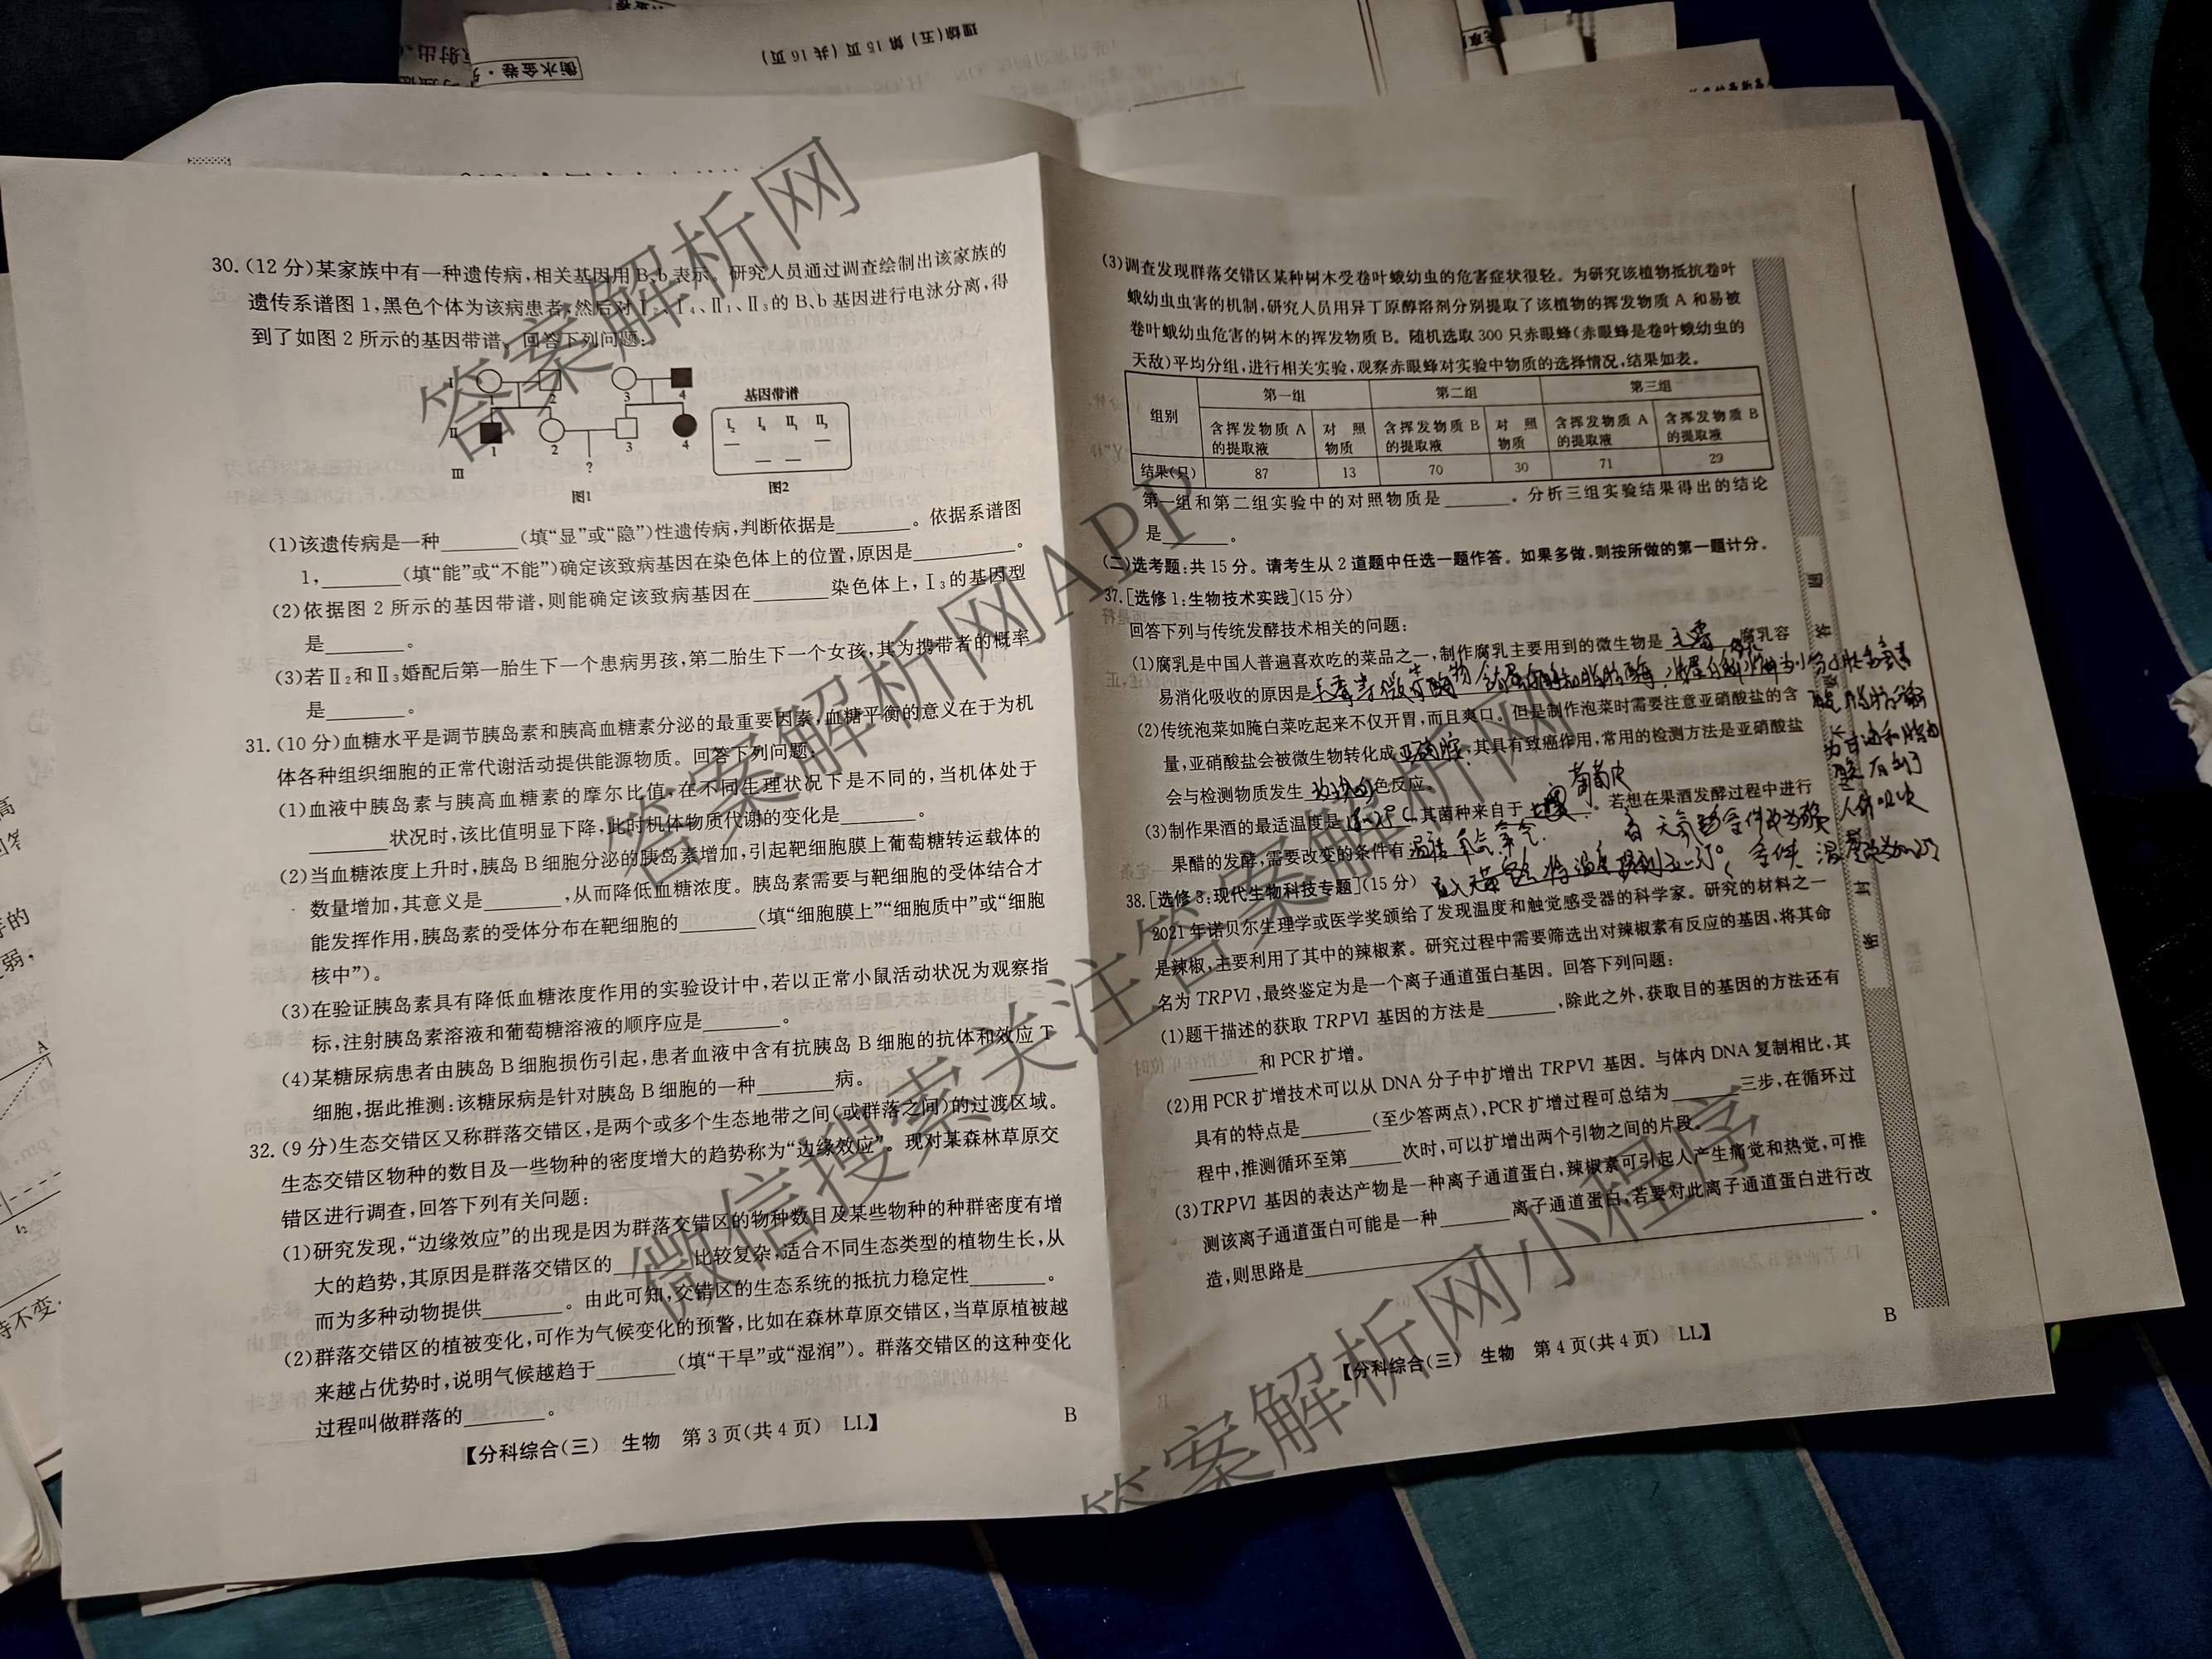 理综(五) 第15页(共16页)
衡水金卷·
30.(12分)某家族中有一种遗传病,相关基因用B、b表示。研究人员通过调查绘制出该家族的
遗传系谱图1,黑色个体为该病患者,然后对Ⅰ₂、Ⅰ₄、Ⅱ₁、Ⅱ₃的B、b基因进行电泳分离,得
到了如图2所示的基因带谱。回答下列问题:
Ⅰ 2 3 4
Ⅱ 1 2 3 4
Ⅲ ?
图1
基因带谱
Ⅰ₂ Ⅰ₄ Ⅱ₁ Ⅱ₃
图2
(1)该遗传病是一种______(填“显”或“隐”)性遗传病,判断依据是______。依据系谱图
1,______(填“能”或“不能”)确定该致病基因在染色体上的位置,原因是______。
(2)依据图2所示的基因带谱,则能确定该致病基因在______染色体上,Ⅰ₃的基因型
是______。
(3)若Ⅱ₂和Ⅱ₃婚配后第一胎生下一个患病男孩,第二胎生下一个女孩,其为携带者的概率
是______。
31.(10分)血糖水平是调节胰岛素和胰高血糖素分泌的最重要因素,血糖平衡的意义在于为机
体各种组织细胞的正常代谢活动提供能源物质。回答下列问题:
(1)血液中胰岛素与胰高血糖素的摩尔比值,在不同生理状况下是不同的,当机体处于
______状况时,该比值明显下降,此时机体物质代谢的变化是______。
(2)当血糖浓度上升时,胰岛B细胞分泌的胰岛素增加,引起靶细胞膜上葡萄糖转运载体的
数量增加,其意义是______,从而降低血糖浓度。胰岛素需要与靶细胞的受体结合才
能发挥作用,胰岛素的受体分布在靶细胞的______(填“细胞膜上”“细胞质中”或“细胞
核中”)。
(3)在验证胰岛素具有降低血糖浓度作用的实验设计中,若以正常小鼠活动状况为观察指
标,注射胰岛素溶液和葡萄糖溶液的顺序应是______。
(4)某糖尿病患者由胰岛B细胞损伤引起,患者血液中含有抗胰岛B细胞的抗体和效应T
细胞,据此推测:该糖尿病是针对胰岛B细胞的一种______病。
32.(9分)生态交错区又称群落交错区,是两个或多个生态地带之间(或群落之间)的过渡区域。
生态交错区物种的数目及一些物种的密度增大的趋势称为“边缘效应”。现对某森林草原交
错区进行调查,回答下列有关问题:
(1)研究发现,“边缘效应”的出现是因为群落交错区的物种数目及某些物种的种群密度有增
大的趋势,其原因是群落交错区的______比较复杂,适合不同生态类型的植物生长,从
而为多种动物提供______。由此可知,交错区的生态系统的抵抗力稳定性______。
(2)群落交错区的植被变化,可作为气候变化的预警,比如在森林草原交错区,当草原植被越
来越占优势时,说明气候越趋于______(填“干旱”或“湿润”)。群落交错区的这种变化
过程叫做群落的______。
【分科综合(三) 生物 第3页(共4页) LL】 B
(3)调查发现群落交错区某种树木受卷叶蛾幼虫的危害症状很轻。为研究该植物抵抗卷叶
蛾幼虫虫害的机制,研究人员用异丁原醇溶剂分别提取了该植物的挥发物质A和易被
卷叶蛾幼虫危害的树木的挥发物质B。随机选取300只赤眼蜂(赤眼蜂是卷叶蛾幼虫的
天敌)平均分组,进行相关实验,观察赤眼蜂对实验中物质的选择情况,结果如表。
组别 第一组 第二组 第三组
含挥发物质A的提取液 对照物质 含挥发物质B的提取液 对照物质 含挥发物质A的提取液 含挥发物质B的提取液
结果(只) 87 13 70 30 71 29
第一组和第二组实验中的对照物质是______。分析三组实验结果得出的结论
是______。
(二)选考题:共15分。请考生从2道题中任选一题作答。如果多做,则按所做的第一题计分。
37.[选修1:生物技术实践](15分)
回答下列与传统发酵技术相关的问题:
(1)腐乳是中国人普遍喜欢吃的菜品之一,制作腐乳主要用到的微生物是毛霉,腐乳容
易消化吸收的原因是毛霉等微生物
(2)传统泡菜如腌白菜吃起来不仅开胃,而且爽口。但是制作泡菜时需要注意亚硝酸盐的含
量,亚硝酸盐会被微生物转化成亚硝胺,其具有致癌作用,常用的检测方法是亚硝酸盐
会与检测物质发生玫瑰红色反应。
(3)制作果酒的最适温度是 ℃,其菌种来自于 葡萄皮。若想在果酒发酵过程中进行
果醋的发酵,需要改变的条件有
38.[选修3:现代生物科技专题](15分)
2021年诺贝尔生理学或医学奖颁给了发现温度和触觉感受器的科学家。研究的材料之一
是辣椒,主要利用了其中的辣椒素。研究过程中需要筛选出对辣椒素有反应的基因,将其命
名为TRPV1,最终鉴定为是一个离子通道蛋白基因。回答下列问题:
(1)题干描述的获取TRPV1基因的方法是______,除此之外,获取目的基因的方法还有
______和PCR扩增。
(2)用PCR扩增技术可以从DNA分子中扩增出TRPV1基因。与体内DNA复制相比,其
具有的特点是______(至少答两点),PCR扩增过程可总结为______三步,在循环过
程中,推测循环至第______次时,可以扩增出两个引物之间的片段。
(3)TRPV1基因的表达产物是一种离子通道蛋白,辣椒素可引起人产生痛觉和热觉,可推
测该离子通道蛋白可能是一种______离子通道蛋白,若要对此离子通道蛋白进行改
造,则思路是______。
【分科综合(三) 生物 第4页(共4页) LL】 B
答案解析网
微信搜索关注答案解析网
答案解析网APP
答案解析网小程序